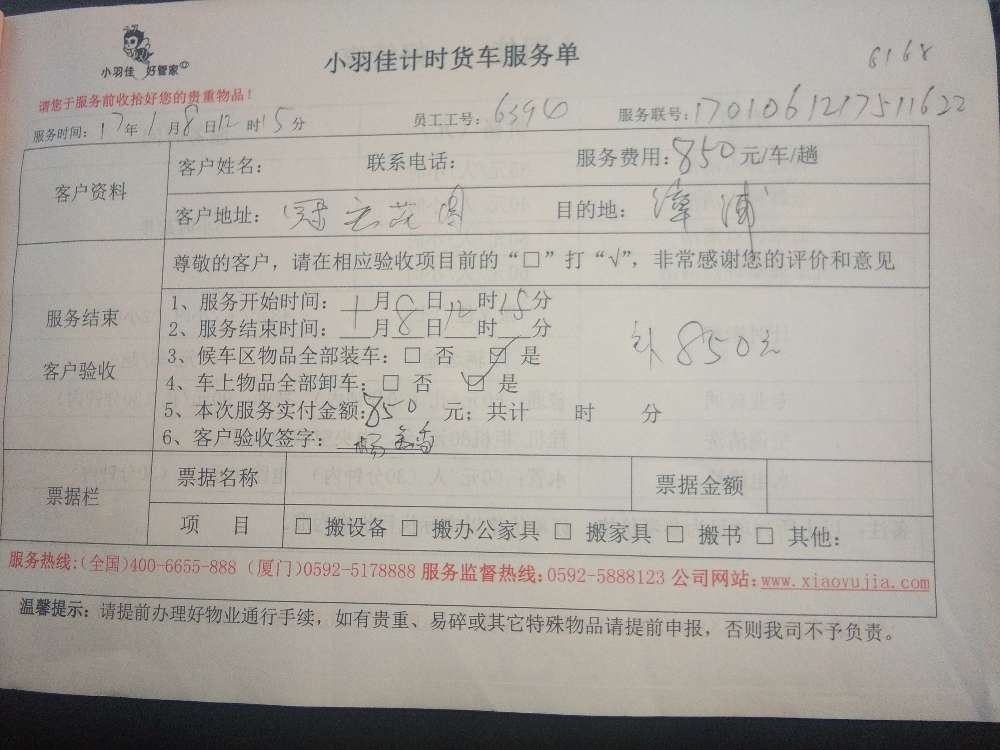 小羽佳 好管家
小羽佳计时货车服务单
6168
请您于服务前收拾好您的贵重物品!
服务时间: 17年1月8日12时15分 员工工号: 6394 服务联号: 1701061217511622
客户资料
客户姓名: 联系电话: 服务费用: 850元/车/趟
客户地址: 冠宏花园 目的地: 漳浦
服务结束
客户验收
尊敬的客户，请在相应验收项目前的“□”打“√”，非常感谢您的评价和意见
1、服务开始时间: 1月8日12时15分
2、服务结束时间: 1月8日12时__分
3、候车区物品全部装车: □ 否 ☑ 是
4、车上物品全部卸车: □ 否 ☑ 是
5、本次服务实付金额: 850 元; 共计 时 分
6、客户验收签字:
850元
票据栏
票据名称 票据金额
项 目 □ 搬设备 □ 搬办公家具 □ 搬家具 □ 搬书 □ 其他:
服务热线:(全国)400-6655-888 (厦门)0592-5178888 服务监督热线:0592-5888123 公司网站:www.xiaoyujia.com
温馨提示: 请提前办理好物业通行手续，如有贵重、易碎或其它特殊物品请提前申报，否则我司不予负责。